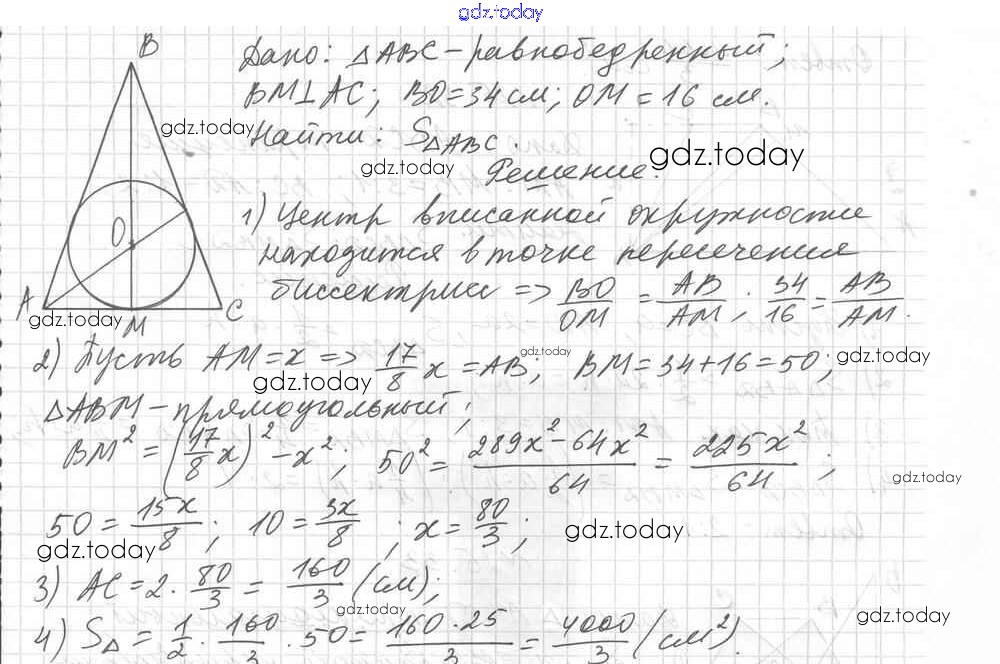 gdz.today
B
Дано: △ABC – равнобедренный;
BM⊥AC; BO=34 см; OM=16 см.
gdz.today
Найти: S△ABC.
gdz.today
gdz.today
Решение:
1) Центр вписанной окружности
O
находится в точке пересечения
биссектрис => BO/OM = AB/AM; 34/16 = AB/AM.
A
M
C
gdz.today
2) Пусть AM=x => 17/8 x = AB; BM=34+16=50;
gdz.today
gdz.today
gdz.today
△ABM – прямоугольный;
BM² = (17/8 x)² – x²; 50² = 289x² – 64x²/64 = 225x²/64;
gdz.today
50 = 15x/8; 10 = 3x/8; x = 80/3;
gdz.today
gdz.today
3) AC = 2 · 80/3 = 160/3 (см);
gdz.today
gdz.today
4) S△ = 1/2 · 160/3 · 50 = 160·25/3 = 4000/3 (см²).